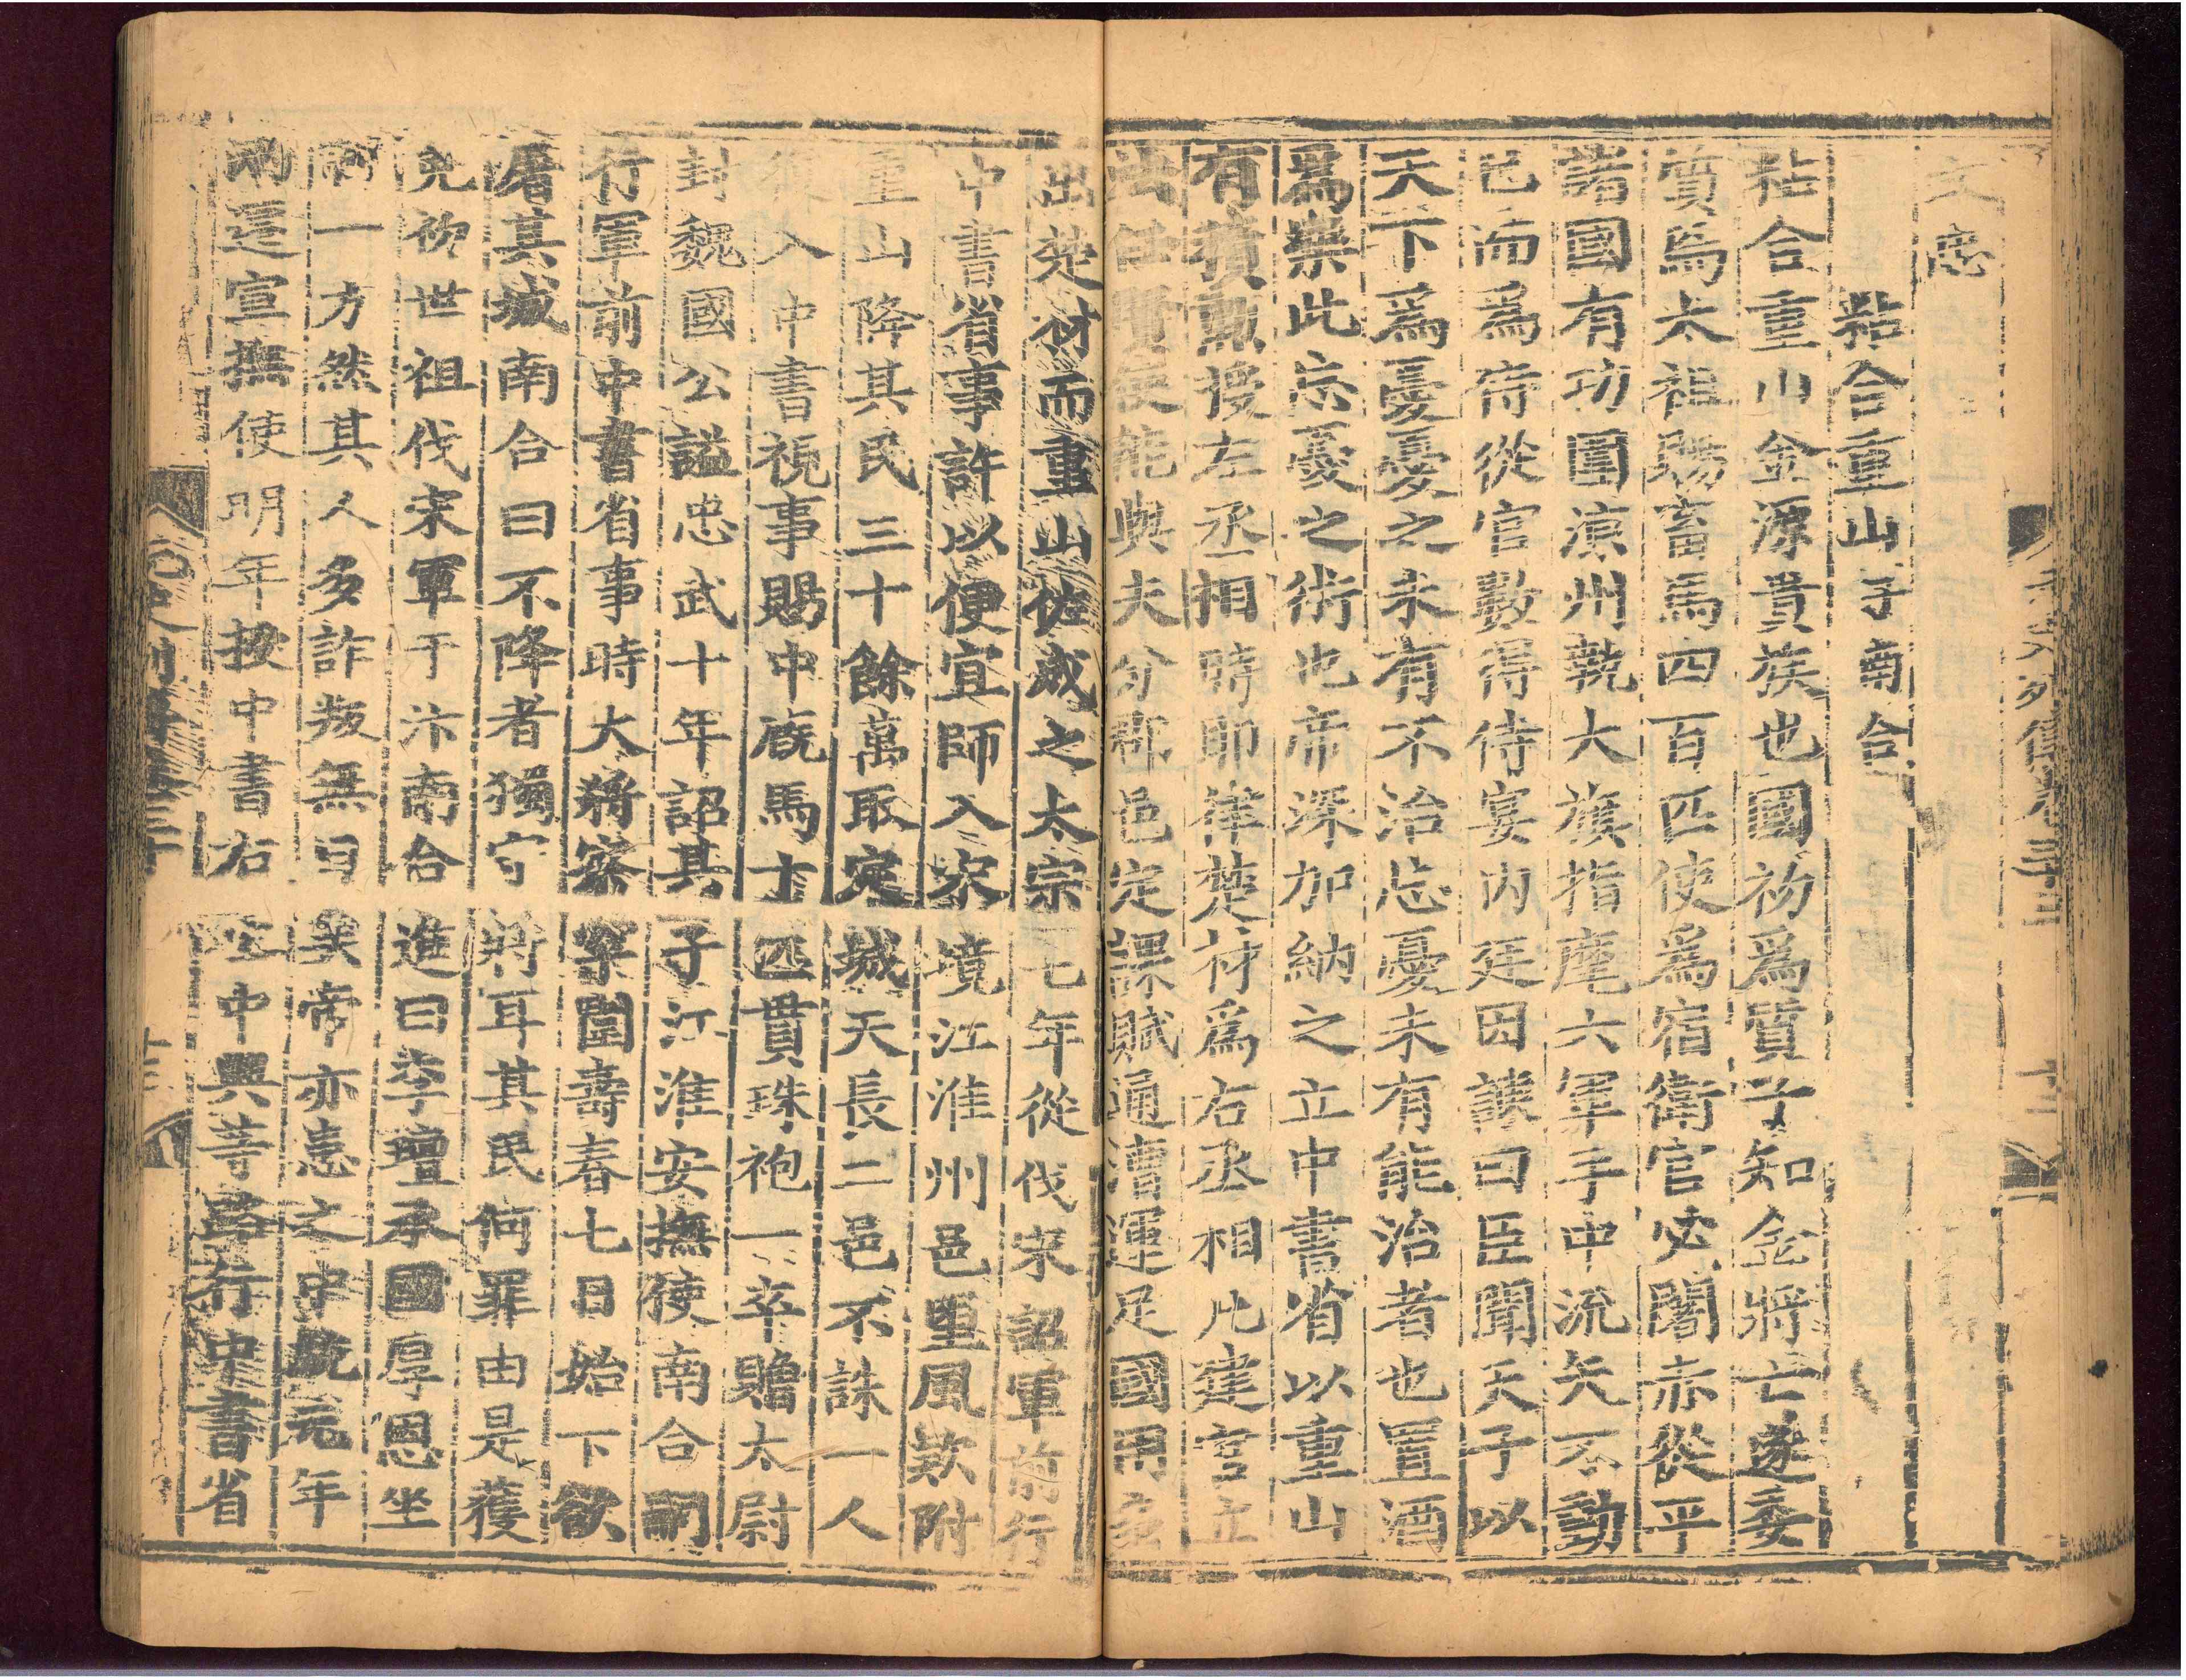 文忠
粘合重山子南合
粘合重山金源貴族也國初爲質子知金將亡遂委
質焉太祖賜畜馬四百匹使爲宿衛官必闍赤從平
諸國有功圍凉州執大旗指麾六軍手中流矢不動
已而爲侍從官數得侍宴內廷因諫曰臣聞天子以
天下爲憂憂之未有不治忘憂未有能治者也置酒
爲樂此忘憂之術也帝深加納之立中書省以重山
有積勳授左丞相時耶律楚材爲右丞相凡建官立
法任賢使能與夫分郡邑定課賦通漕運足國用多
出楚材而重山佐成之太宗七年從伐宋詔軍前行
中書省事許以便宜師入宋境江淮州邑望風欵附
重山降其民三十餘萬取定城天長二邑不誅一人
復入中書視事賜中廐馬十匹貫珠袍一卒贈太尉
封魏國公謚忠武十年詔其子江淮安撫使南合嗣
行軍前中書省事時大將察罕圍壽春七日始下欲
屠其城南合曰不降者獨守將耳其民何罪由是獲
免初世祖伐宋軍于汴南合進曰李璮承國厚恩坐
制一方然其人多詐叛無日矣帝亦患之中統元年
兩遷宣撫使明年授中書右丞中興等路行中書省